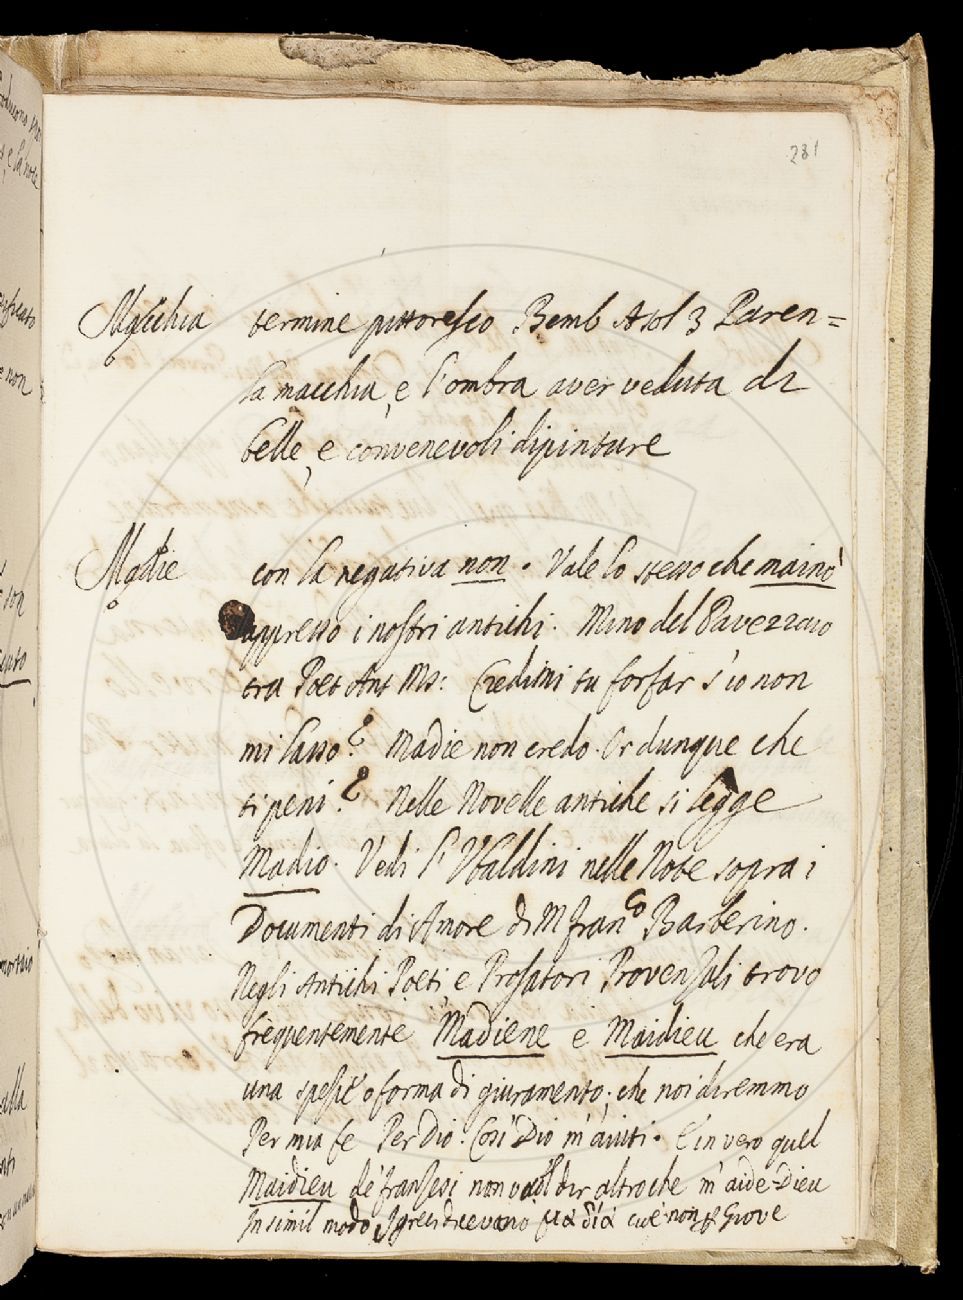 281
Macchia termine pittoresco Bemb Asol 3 Paren=
la macchia, e l'ombra aver veduta di
belle, e convenevoli dipinture
Madie con la negativa non. Vale lo stesso che mainò
appresso i nostri antichi. Mino del Pavezzaio
tra Poet Ant Ms: Credimi tu forfar s'io non
mi lasso? Madie non credo. Or dunque che
ti peni? Nelle Novelle antiche si legge
Madio. Vedi l'Ubaldini nelle Note sopra i
Documenti di Amore di M Fran.co Barberino.
Negli Antichi Poeti e Prosatori Provenzali trovo
frequentemente Madiene e Maidieu che era
una spesie o forma di giuramento. che noi diremmo
Per mia fe Per Dio. Così Dio m'aiuti. E in vero quel
Maidieu de' franzesi non vuol dir altro che m'aide Dieu
In simil modo I greci dicevano μὰ δία cioè non p Giove